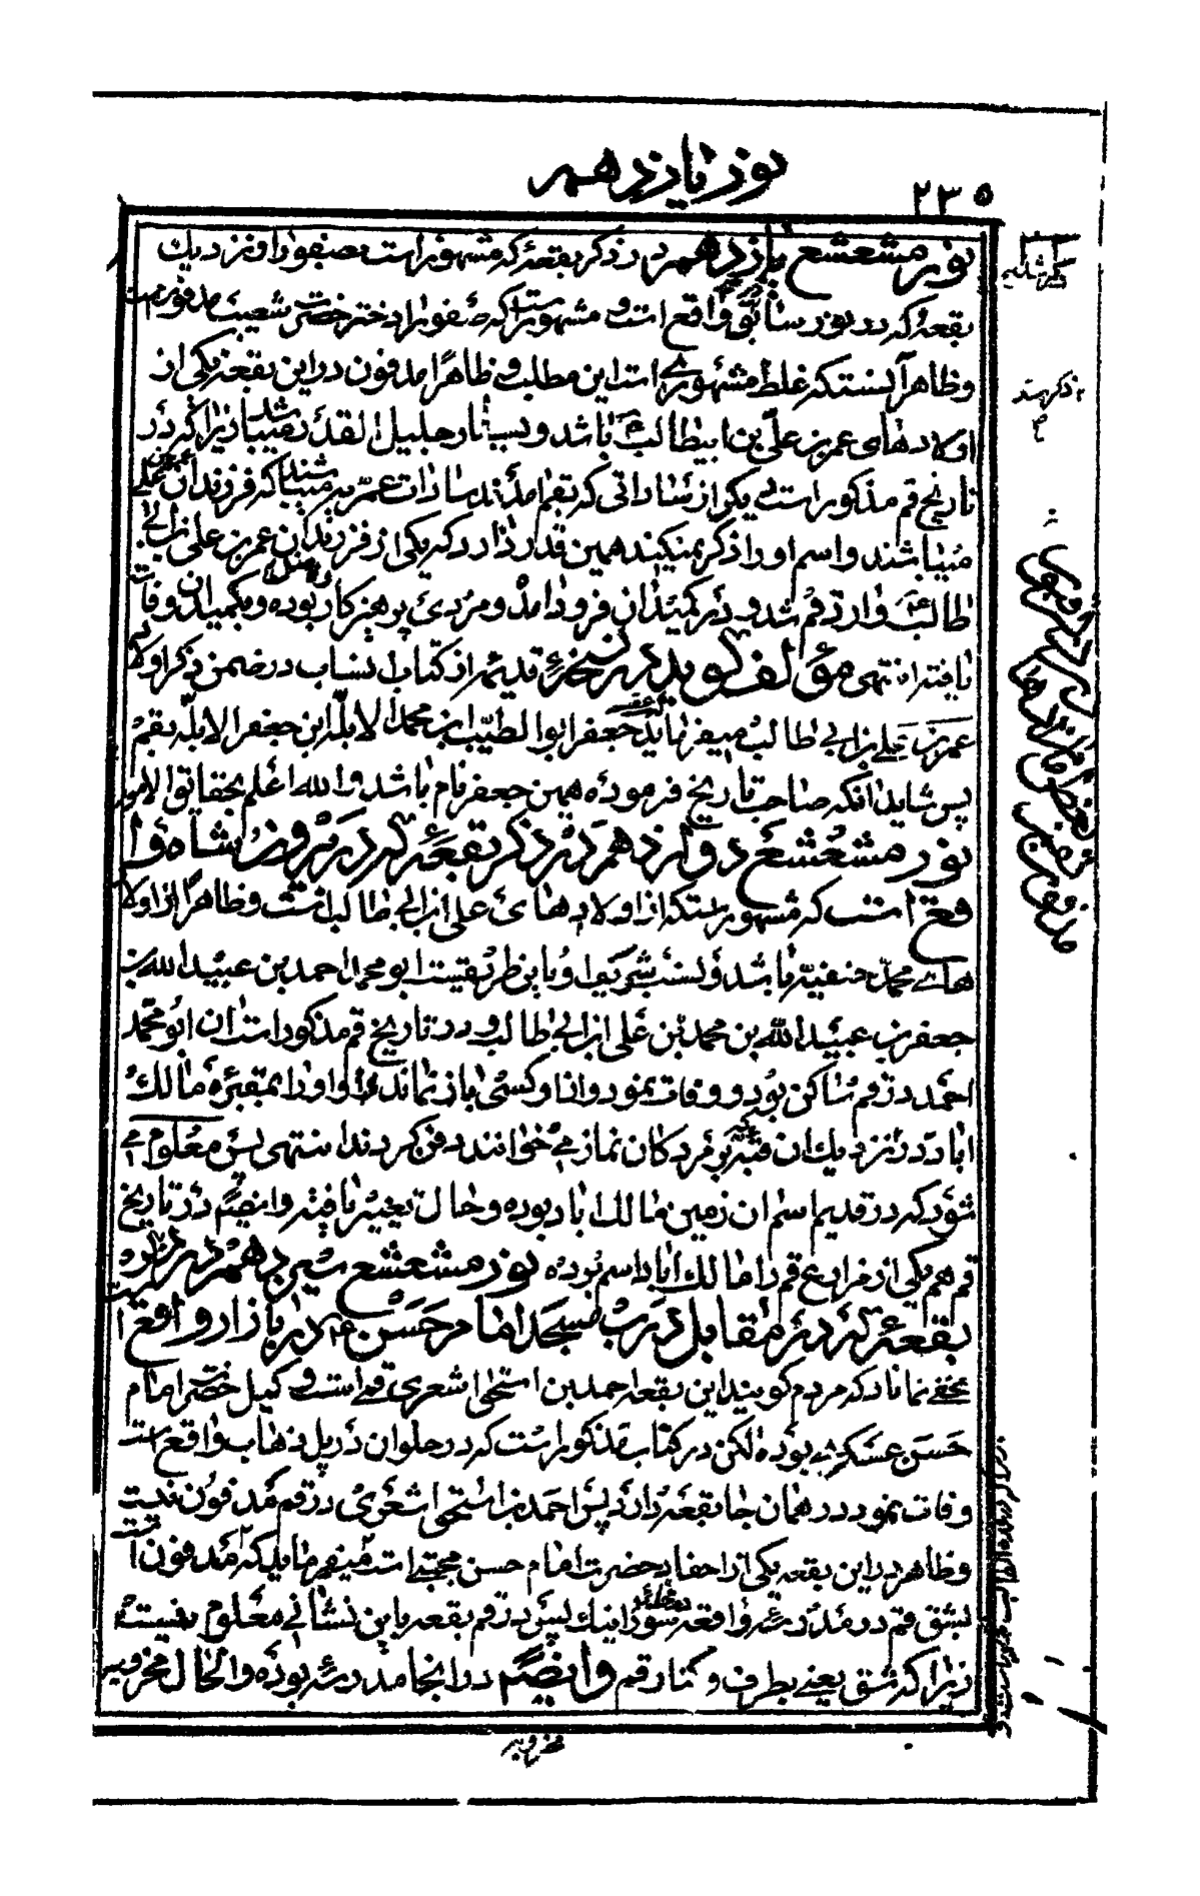 نور یازدهم
۲۳۵
نور مشعشع یازدهم در ذکر بقعهٔ که مشهور است بصفورا و نزدیک
بقعهٔ که در نور سابق واقع است و مشهور است که صفورا دختر حضرت شعیب مدفونست
و ظاهر آنستکه غلط مشهوری است این مطلب و ظاهرا مدفون در این بقعه یکی از
اولادهای عمر بن علی بن ابیطالب ع باشد و بسیار جلیل القدر میباشد زیرا که در
تاریخ قم مذکور است یکی از ساداتی که بقم امدند سادات عمریه میباشند که فرزندان عمر بن علی
میباشند و اسم او را ذکر نمیکند همین قدر دارد که یکی از فرزندان عمر بن علی بن ابی
طالب ع وارد قم شد و در کمیدان فرود امد و مردی پرهیزکار بوده و بکمیدان وفات
یافته انتهی مؤلف گوید در نسخهٔ قدیمه از کتاب انساب در ضمن ذکر اولاد
عمر بن علی بن ابی طالب میفرماید جعفر ابوالطیب ابن محمد الابله ابن جعفر الابله بقم
پس شاید انکه صاحب تاریخ فرموده همین جعفر نام باشد والله اعلم بحقائق الامور
نور مشعشع دوازدهم در ذکر بقعهٔ که در بیرون شاه وا
قع است که مشهور استکه از اولادهای علی ابن ابی طالب است و ظاهرا از اولاد
های محمد حنفیه باشد و نسب شریف او باین طریقست ابو محمد احمد بن عبیدالله بن
جعفر بن عبیدالله بن محمد بن علی ابن ابی طالب و در تاریخ قم مذکور است ان ابو محمد
احمد در قم ساکن بود و وفات نمود و از او کسی باز نماند و او را بمقبرهٔ مالک
اباد در نزدیک ان قبه که بر مردکان نماز می خوانند دفن کردند انتهی پس معلوم می
شود که در قدیم اسم ان زمین مالک اباد بوده و حال تغییر یافته و ایضا در تاریخ
قم هم یکی از مزارع قم را مالک اباد اسم بوده نور مشعشع سیزدهم در ذکر
بقعهٔ که در مقابل درب مسجد امام حسن ع در بازار واقع ا
مخفی نماناد که مردم کویند این بقعه احمد بن اسحق اشعری قمی است و وکیل حضرت امام
حسن عسکری بوده لکن در کتاب مذکور است که در حلوان در پل ذهاب واقع است
وفات نمود در همان جا بقعه دارد پس احمد بن اسحق اشعری در قم مدفون نیست
و ظاهر در این بقعه یکی از احفاد حضرت امام حسن مجتبی است میفرماید که مدفون است
بشق قم در مدرسه واقعه اینک پس در قم بقعه باین نشانی معلوم نیست
زیرا که شق یعنی بطرف و کنار قم و ایضا در انجا مدرسه بوده و الحال مخروبه
مخروبه